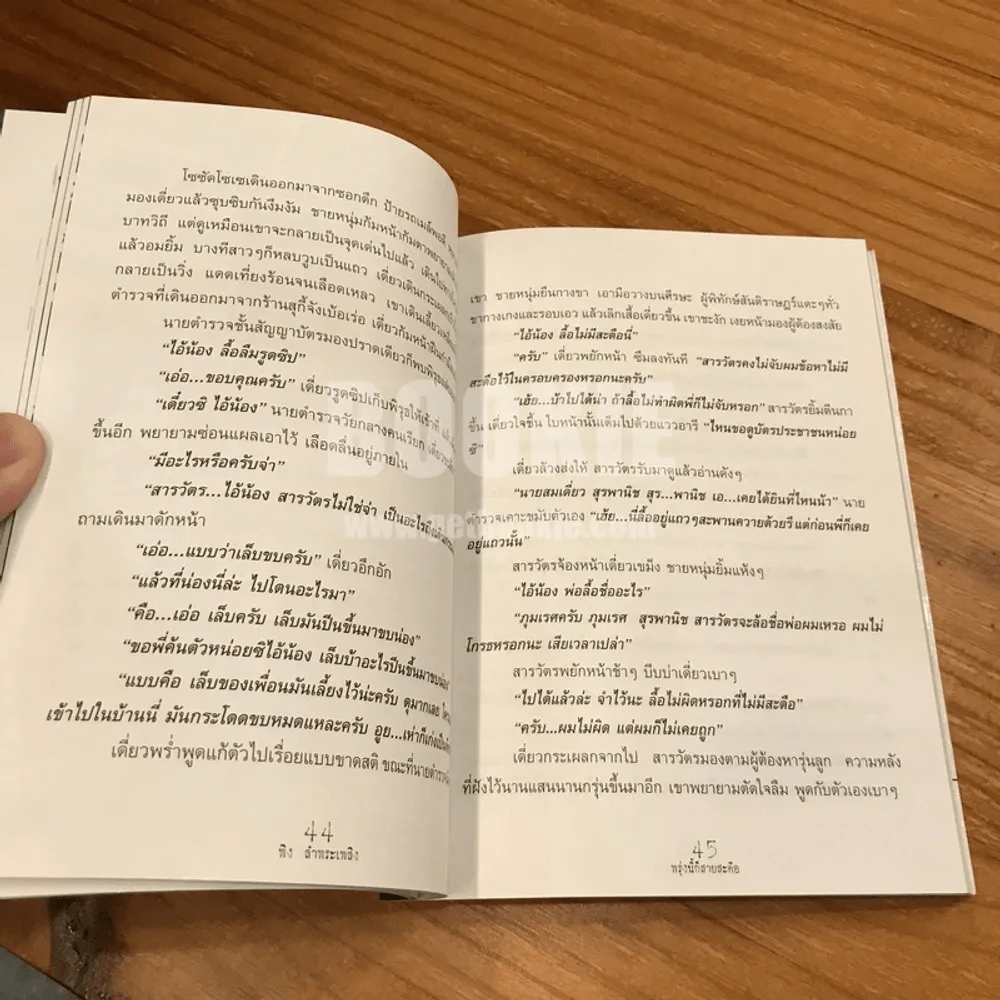 โซซัดโซเซเดินออกมาจากซอกตึก ป้ายรถเมล์พอดี
มองเดี่ยวแล้วซุบซิบกันงึมงัม ชายหนุ่มก้มหน้าก้มตาพยายาม
บาทวิถี แต่ดูเหมือนเขาจะกลายเป็นจุดเด่นไปแล้ว เดินไป
แล้วอมยิ้ม บางทีสาวๆก็หลบวูบเป็นแถว เดี่ยวเดินกระเผลก
กลายเป็นวิ่ง แดดเที่ยงร้อนจนเลือดเหลว เขาเดินเลี้ยว
ตำรวจที่เดินออกมาจากร้านสุกี้จังเบ้อเร่อ เดี่ยวก้มหน้า
นายตำรวจชั้นสัญญาบัตรมองปราดเดียวก็พบพิรุธ
“ไอ้น้อง ลื้อลืมรูดซิป”
“เอ่อ...ขอบคุณครับ” เดี่ยวรูดซิปเก็บพิรุธให้เข้าที่ แล้ว
“เดี๋ยวซิ ไอ้น้อง” นายตำรวจวัยกลางคนเรียก เดี่ยว
ขึ้นอีก พยายามซ่อนแผลเอาไว้ เลือดลื่นอยู่ภายใน
“มีอะไรหรือครับจ่า”
“สารวัตร...ไอ้น้อง สารวัตรไม่ใช่จ่า เป็นอะไรถึง
ถามเดินมาดักหน้า
“เอ่อ...แบบว่าเล็บขบครับ” เดี่ยวอึกอัก
“แล้วที่น่องนี่ล่ะ ไปโดนอะไรมา”
“คือ...เอ่อ เล็บครับ เล็บมันปีนขึ้นมาขบน่อง”
“ขอพี่ค้นตัวหน่อยซิไอ้น้อง เล็บบ้าอะไรปีนขึ้นมาขบน่อง”
“แบบคือ เล็บของเพื่อนมันเลี้ยงไว้น่ะครับ ดุมากเลย ใคร
เข้าไปในบ้านนี่ มันกระโดดขบหมดแหละครับ อูย...เห่าก็เก่ง
เดี่ยวพร่ำพูดแก้ตัวไปเรื่อยแบบขาดสติ ขณะที่นายตำรวจ
44
พิง ลำพระเพลิง
เขา ชายหนุ่มยืนกางขา เอามือวางบนศีรษะ ผู้พิทักษ์สันติราษฎร์แตะๆทั่ว
ขากางเกงและรอบเอว แล้วเลิกเสื้อเดี่ยวขึ้น เขาชะงัก เงยหน้ามองผู้ต้องสงสัย
“ไอ้น้อง ลื้อไม่มีสะดือนี่”
“ครับ” เดี่ยวพยักหน้า ซึมลงทันที “สารวัตรคงไม่จับผมข้อหาไม่มี
สะดือไว้ในครอบครองหรอกนะครับ”
“เฮ้ย...บ้าไปได้น่า ถ้าลื้อไม่ทำผิดพี่ก็ไม่จับหรอก” สารวัตรยิ้มตีนกา
ขึ้น เดี่ยวใจชื้น ใบหน้านั้นเต็มไปด้วยแววอารี “ไหนขอดูบัตรประชาชนหน่อย
ซิ”
เดี่ยวล้วงส่งให้ สารวัตรรับมาดูแล้วอ่านดังๆ
“นายสมเดี่ยว สุรพานิช สุร...พานิช เอ...เคยได้ยินที่ไหนน้า” นาย
ตำรวจเคาะขมับตัวเอง “เฮ้ย...นี่ลื้ออยู่แถวๆสะพานควายด้วยรึ แต่ก่อนพี่ก็เคย
อยู่แถวนั้น”
สารวัตรจ้องหน้าเดี่ยวเขม็ง ชายหนุ่มยิ้มแห้งๆ
“ไอ้น้อง พ่อลื้อชื่ออะไร”
“ภูมเรศครับ ภูมเรศ สุรพานิช สารวัตรจะล้อชื่อพ่อผมเหรอ ผมไม่
โกรธหรอกนะ เสียเวลาเปล่า”
สารวัตรพยักหน้าช้าๆ บีบบ่าเดี่ยวเบาๆ
“ไปได้แล้วล่ะ จำไว้นะ ลื้อไม่ผิดหรอกที่ไม่มีสะดือ”
“ครับ...ผมไม่ผิด แต่ผมก็ไม่เคยถูก”
เดี่ยวกระเผลกจากไป สารวัตรมองตามผู้ต้องหารุ่นลูก ความหลัง
ที่ฝังไว้นานแสนนานกรุ่นขึ้นมาอีก เขาพยายามตัดใจลืม พูดกับตัวเองเบาๆ
45
พรุ่งนี้ก็สายสะดือ